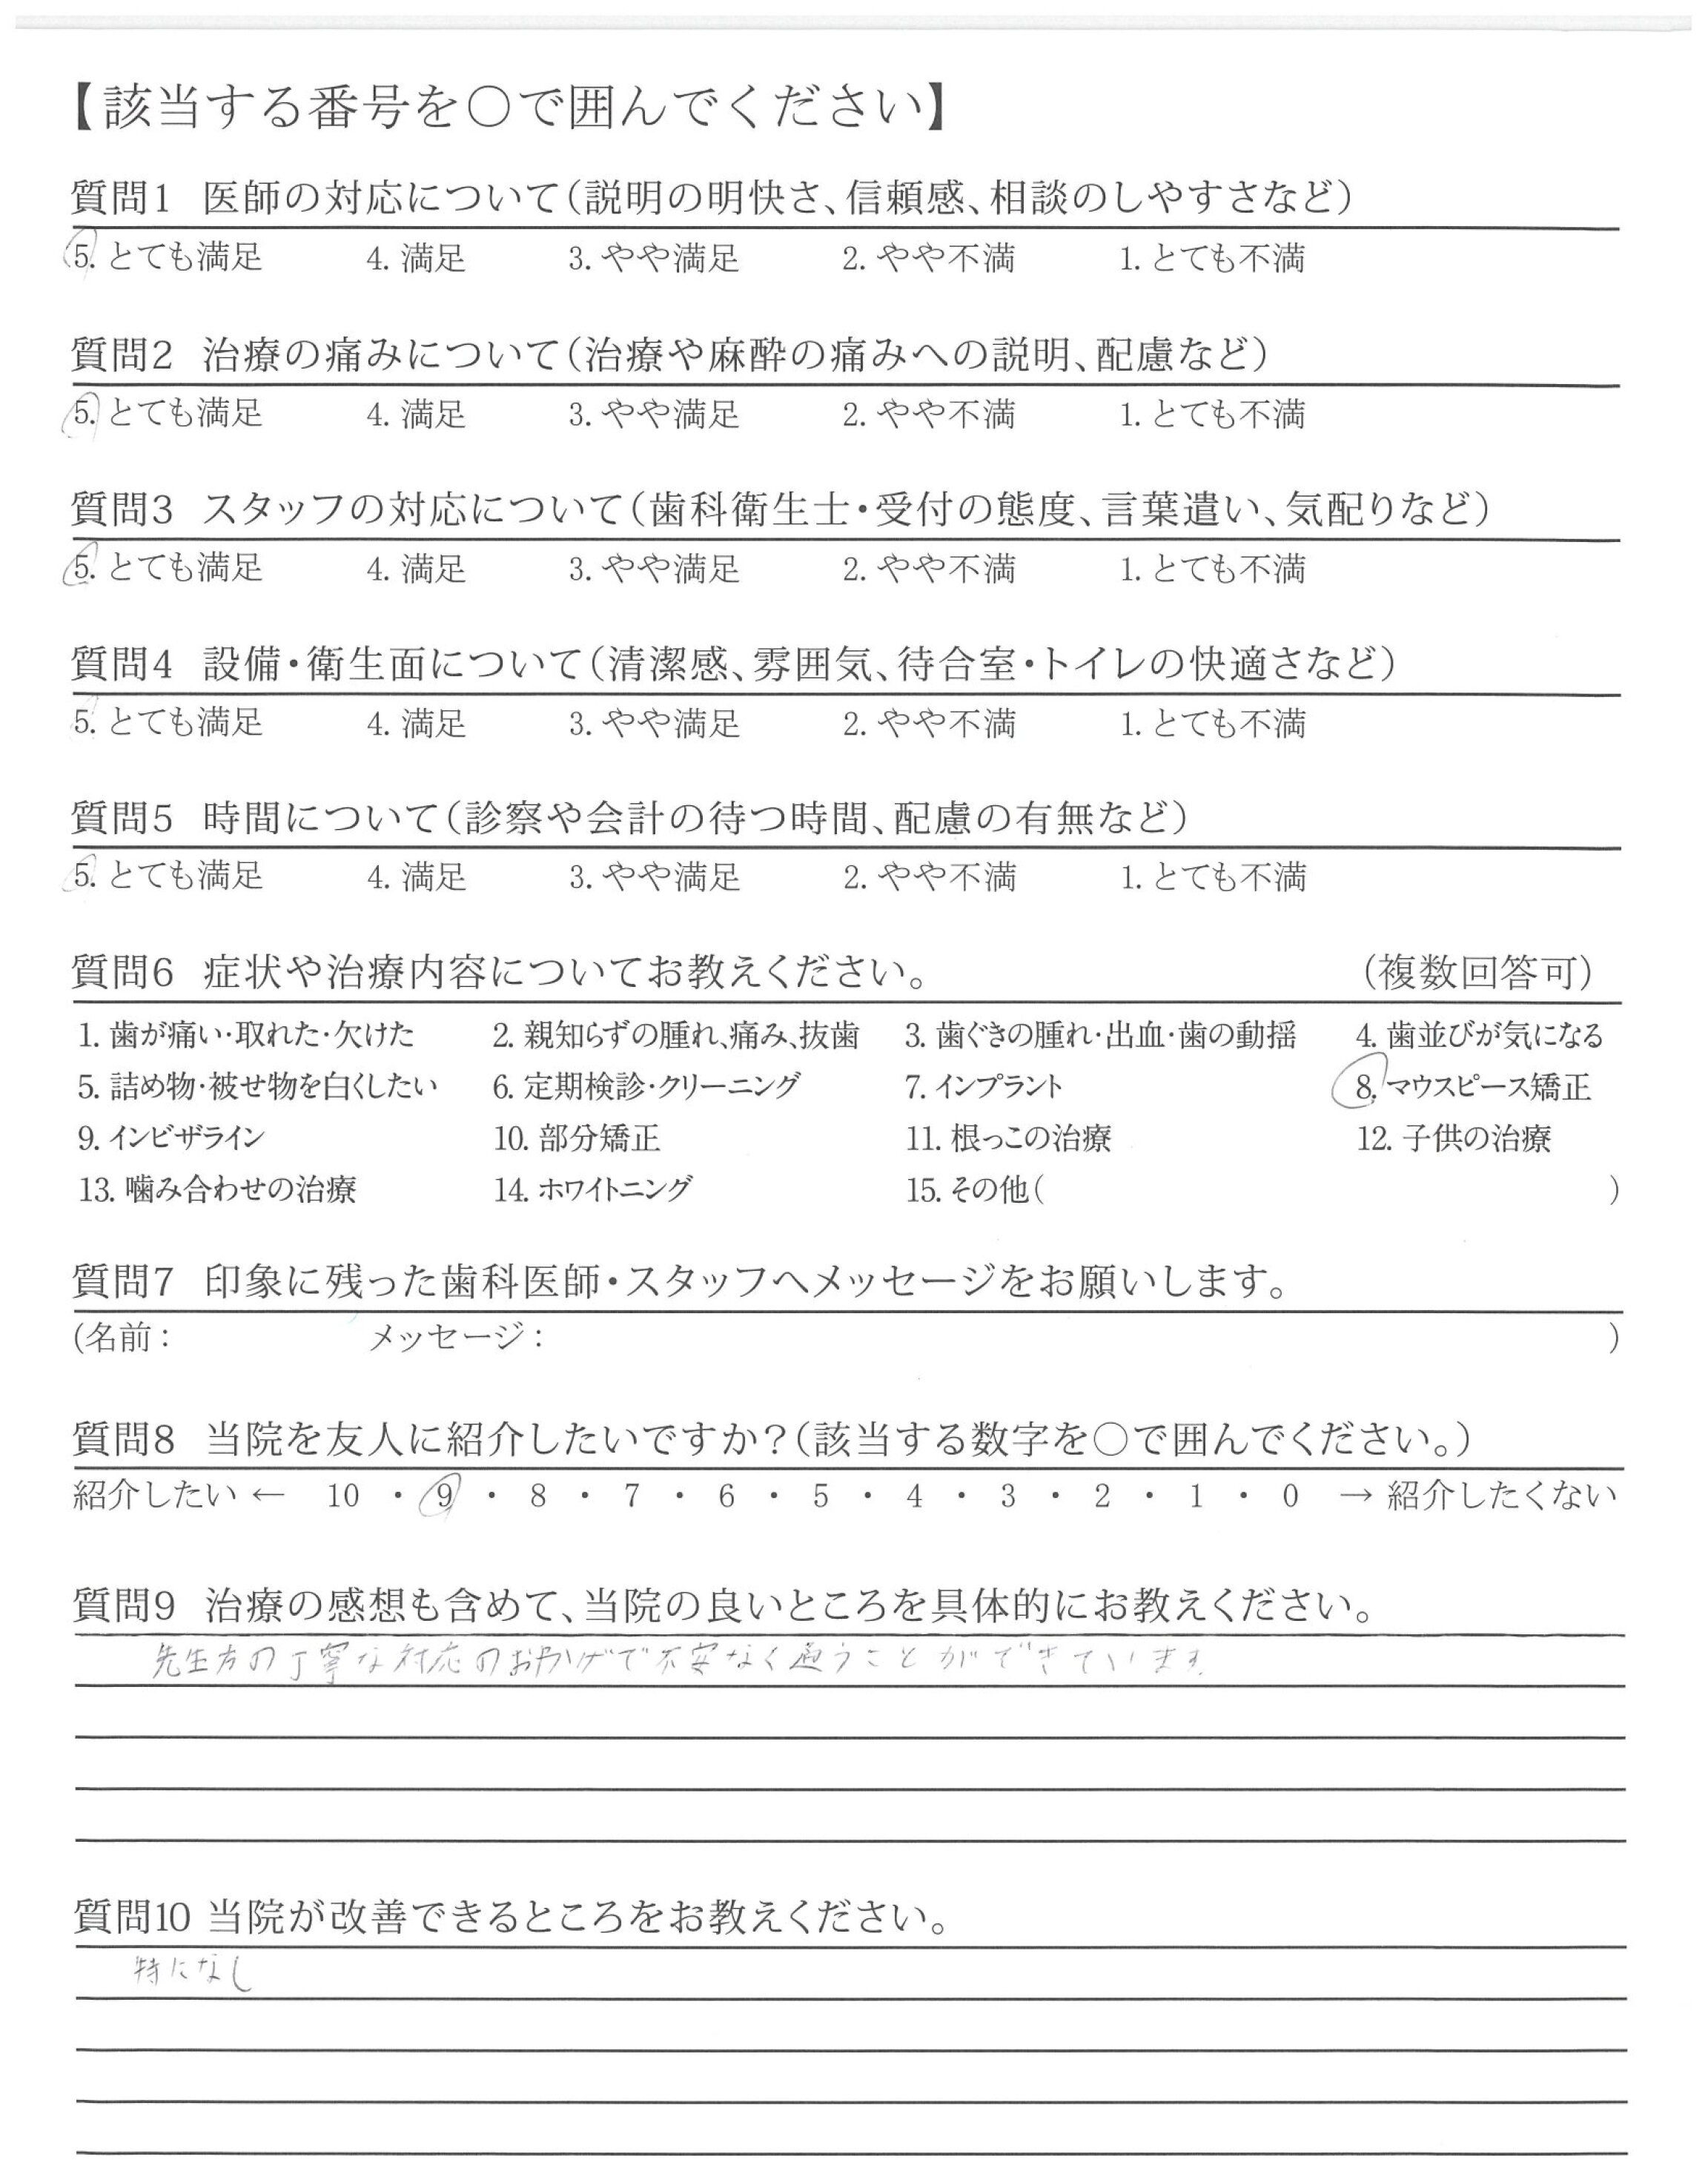 【該当する番号を○で囲んでください】
質問1 医師の対応について（説明の明快さ、信頼感、相談のしやすさなど）
5. とても満足 4. 満足 3. やや満足 2. やや不満 1. とても不満
質問2 治療の痛みについて（治療や麻酔の痛みへの説明、配慮など）
5. とても満足 4. 満足 3. やや満足 2. やや不満 1. とても不満
質問3 スタッフの対応について（歯科衛生士・受付の態度、言葉遣い、気配りなど）
5. とても満足 4. 満足 3. やや満足 2. やや不満 1. とても不満
質問4 設備・衛生面について（清潔感、雰囲気、待合室・トイレの快適さなど）
5. とても満足 4. 満足 3. やや満足 2. やや不満 1. とても不満
質問5 時間について（診察や会計の待つ時間、配慮の有無など）
5. とても満足 4. 満足 3. やや満足 2. やや不満 1. とても不満
質問6 症状や治療内容についてお教えください。 （複数回答可）
1. 歯が痛い・取れた・欠けた 2. 親知らずの腫れ、痛み、抜歯 3. 歯ぐきの腫れ・出血・歯の動揺 4. 歯並びが気になる
5. 詰め物・被せ物を白くしたい 6. 定期検診・クリーニング 7. インプラント 8. マウスピース矯正
9. インビザライン 10. 部分矯正 11. 根っこの治療 12. 子供の治療
13. 噛み合わせの治療 14. ホワイトニング 15. その他（ ）
質問7 印象に残った歯科医師・スタッフへメッセージをお願いします。
（名前： メッセージ： ）
質問8 当院を友人に紹介したいですか？（該当する数字を○で囲んでください。）
紹介したい ← 10 ・ 9 ・ 8 ・ 7 ・ 6 ・ 5 ・ 4 ・ 3 ・ 2 ・ 1 ・ 0 → 紹介したくない
質問9 治療の感想も含めて、当院の良いところを具体的にお教えください。
先生方の丁寧な対応のおかげで不安なく通うことができています。
質問10 当院が改善できるところをお教えください。
特になし